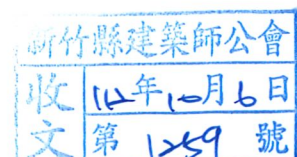 新竹縣建築師公會
收文
112年10月6日
第1259號